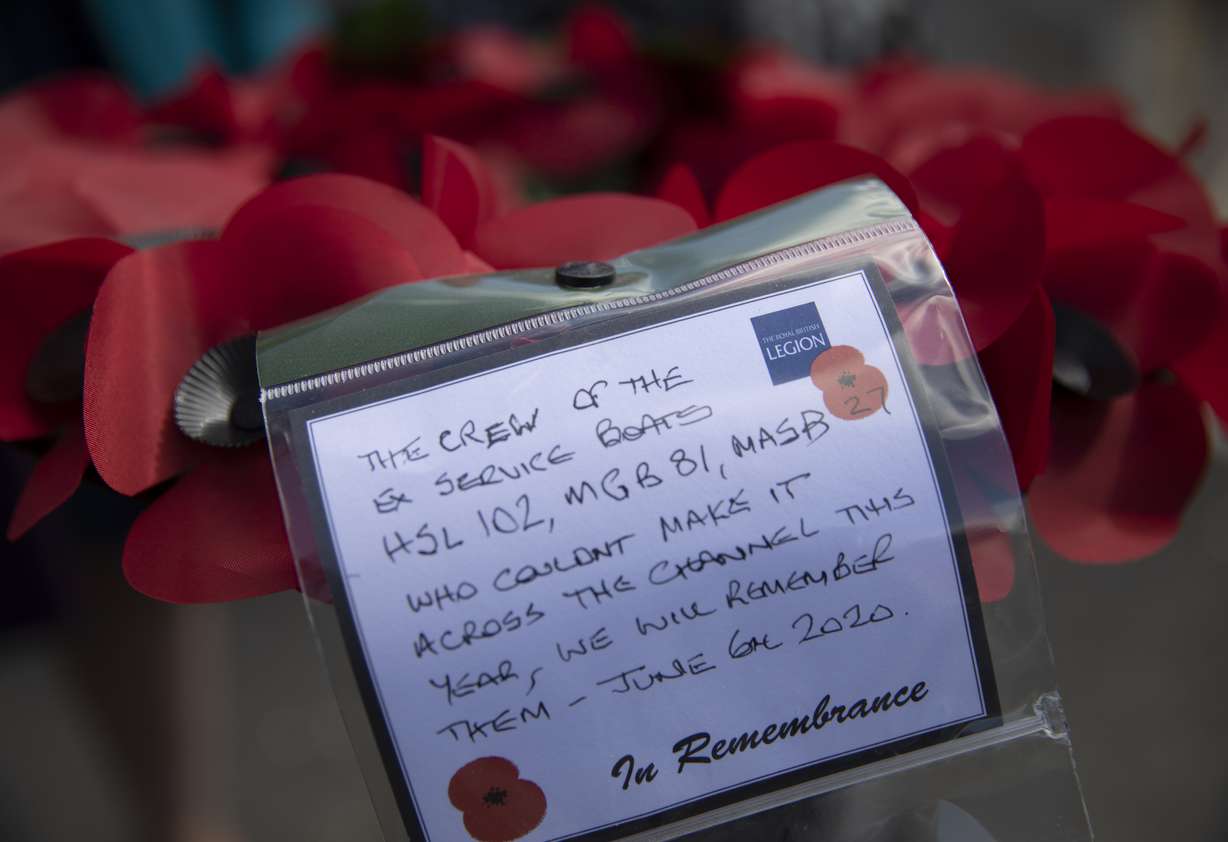 THE ROYAL BRITISH
LEGION
THE CREW OF THE
EX SERVICE BOATS
HSL 102, MGB 81, MASB 27
WHO COULDNT MAKE IT
ACROSS THE CHANNEL THIS
YEAR, WE WILL REMEMBER
THEM - JUNE 6TH 2020.
In Remembrance